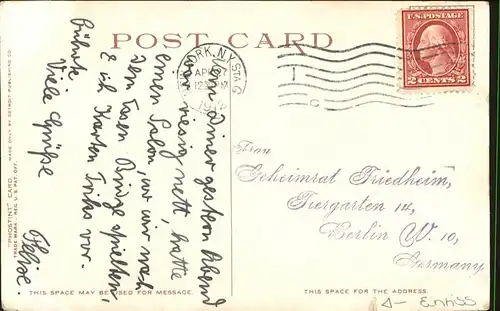 POST CARD
U.S. POSTAGE
2 CENTS 2
YORK, N.Y. STA. G
APR
12
Diner gestern Abend
war riesig nett, hatte
einen Salon, wo wir nach
dem Essen Bridge spielten,
& ich Karten Tricks vor-
führte
Viele Grüße
Felix.
Frau
Geheimrat Friedheim,
Tiergarten 14,
Berlin W. 10,
Germany
"PHOSTINT" CARD. MADE ONLY BY DETROIT PUBLISHING CO.
TRADE MARK REG. U.S. PAT. OFF.
THIS SPACE MAY BE USED FOR MESSAGE.
THIS SPACE FOR THE ADDRESS.